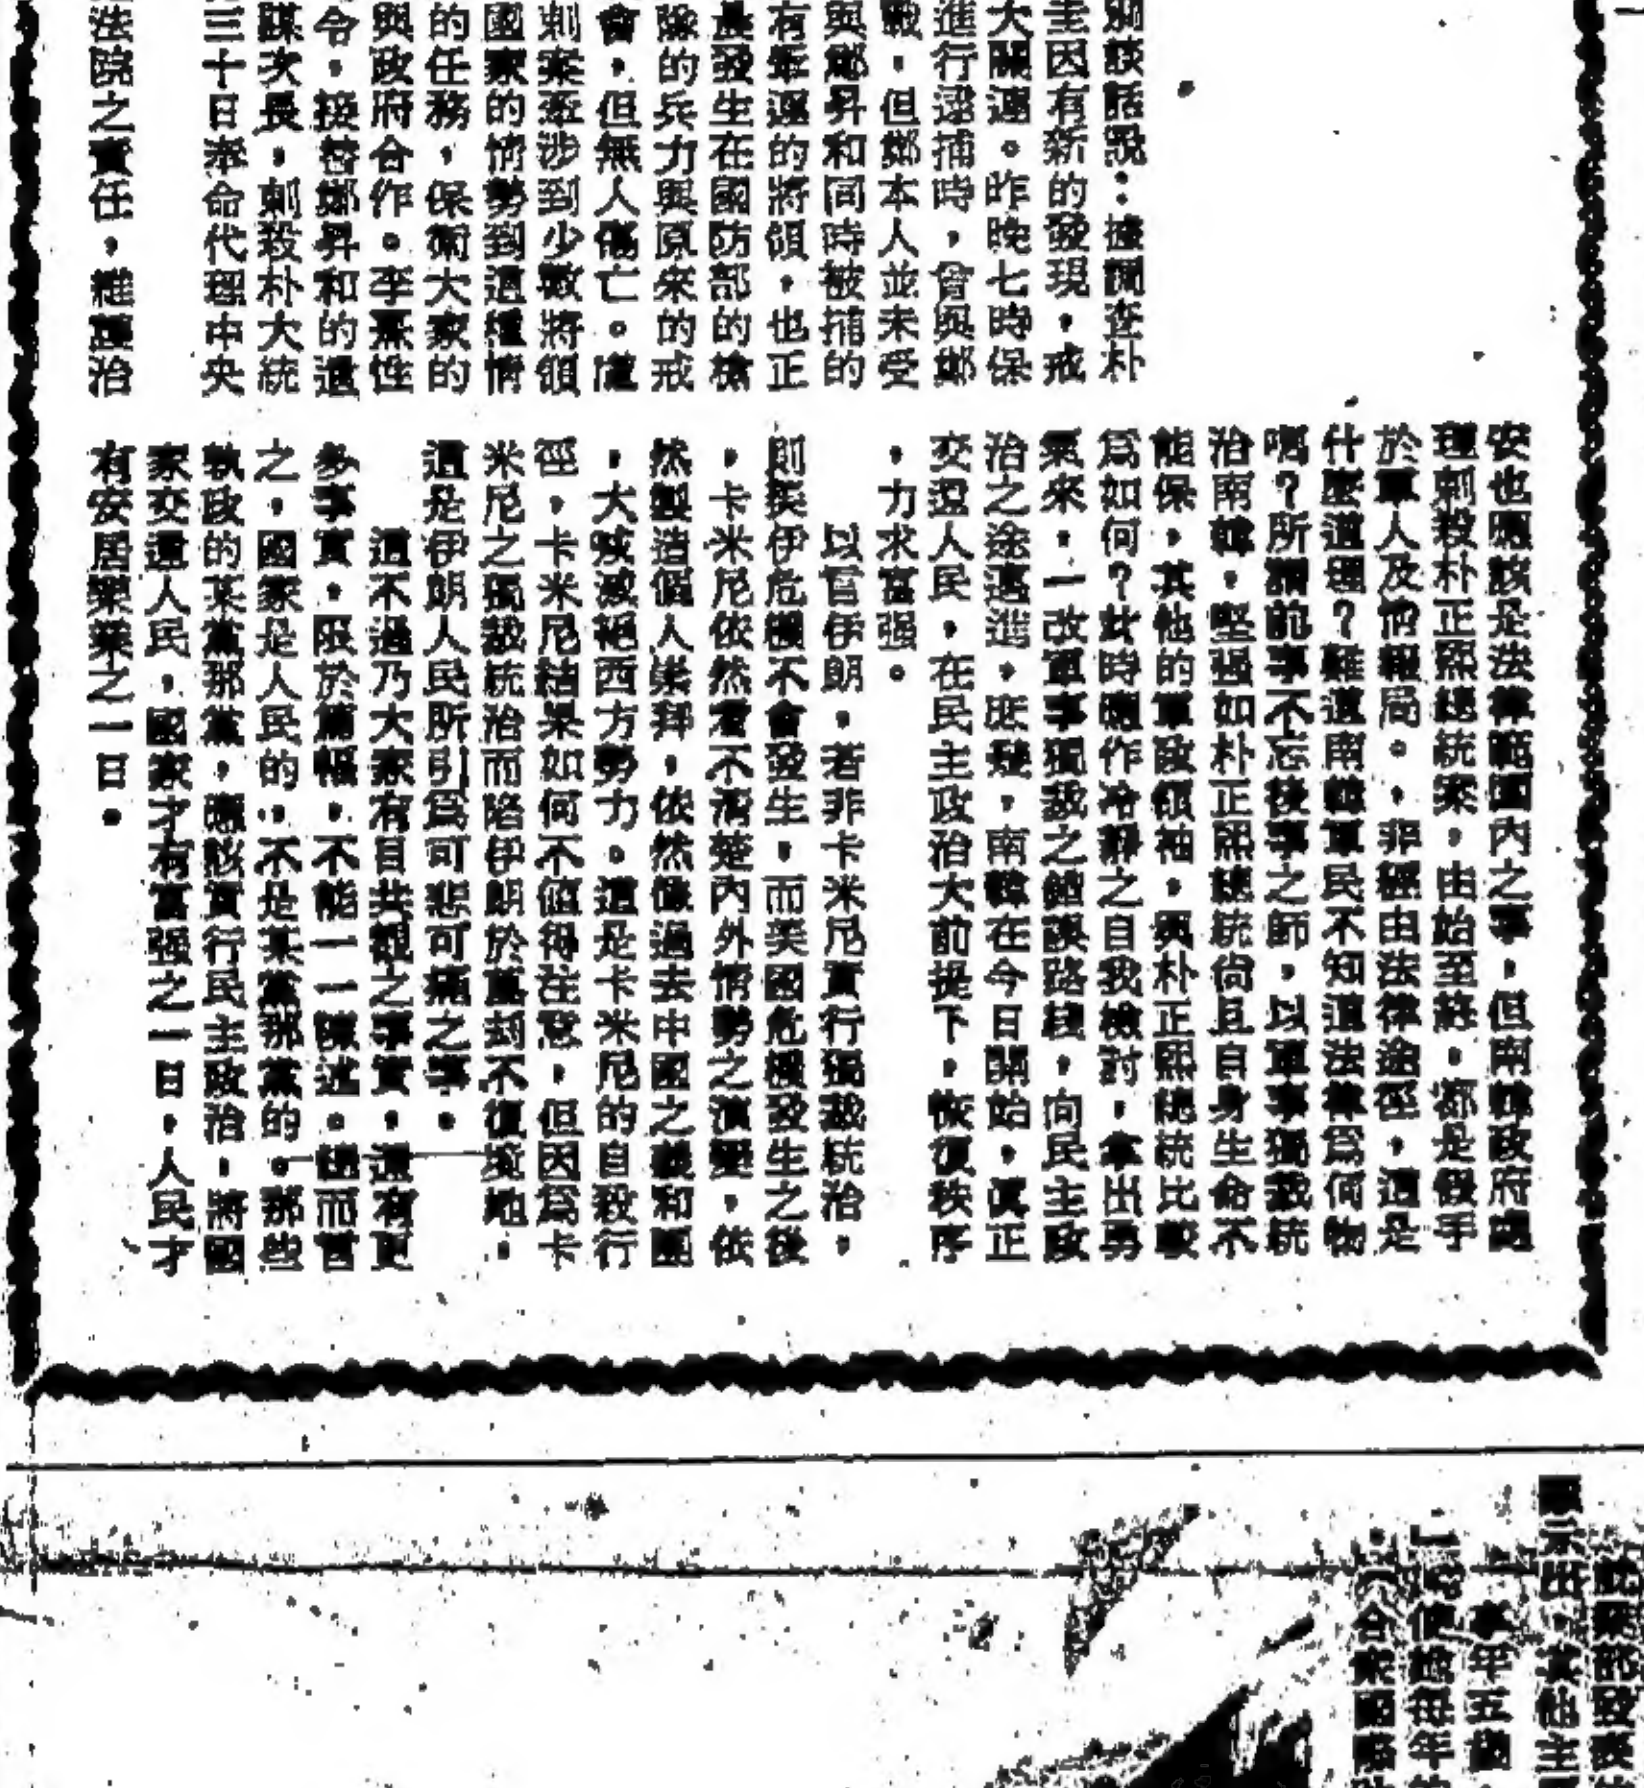 別談話說：據調查朴
圭因有新的發現，戒
大關連。昨晚七時保
進行逮捕時，曾與鄭
戰，但鄭本人並未受
與鄭昇和同時被捕的
有牽連的將領，也正
長發生在國防部的槍
隊的兵力與原來的戒
會，但無人傷亡。盧
刺案牽涉到少數將領
國家的情勢到這種情
的任務，保衛大家的
與政府合作。李熹性
令，接替鄭昇和的遺
謀次長，刺殺朴大統
三十日奉命代理中央
法院之責任，維護治
安也應該是法律範圍內之事，但南韓政府處
理刺殺朴正熙總統案，由始至終，都是假手
於軍人及情報局。，非經由法律途徑，這是
什麼道理？難道南韓軍民不知道法律為何物
嗎？所謂前事不忘後事之師，以軍事獨裁統
治南韓，堅強如朴正熙總統尙且自身生命不
能保，其他的軍政領袖，與朴正熙總統比較
爲如何？此時應作冷靜之自我檢討，拿出勇
氣來，一改軍事獨裁之錯誤路綫，向民主政
治之途邁進，庶幾，南韓在今日開始，眞正
交還人民，在民主政治大前提下，恢復秩序
，力求富强。
以言伊朗，若非卡米尼實行獨裁統治，
則美伊危機不會發生，而美國危機發生之後
，卡米尼依然看不清楚內外情勢之演變，依
然製造個人崇拜，依然像過去中國之義和團
，大喊滅絕西方勢力。這是卡米尼的自殺行
徑，卡米尼結果如何不值得注意，但因爲卡
米尼之獨裁統治而陷伊朗於萬刼不復境地，
這是伊朗人民所引爲可悲可痛之事。
這不過乃大家有目共覩之事實，還有更
多事實，限於篇幅，不能一一陳述。總而言
之，國家是人民的，不是某黨那黨的。那些
執政的某黨那黨，應該實行民主政治，將國
家交還人民，國家才有富强之一日，人民才
有安居樂業之一日。
示出，其他主
年五
使 每年
合衆國